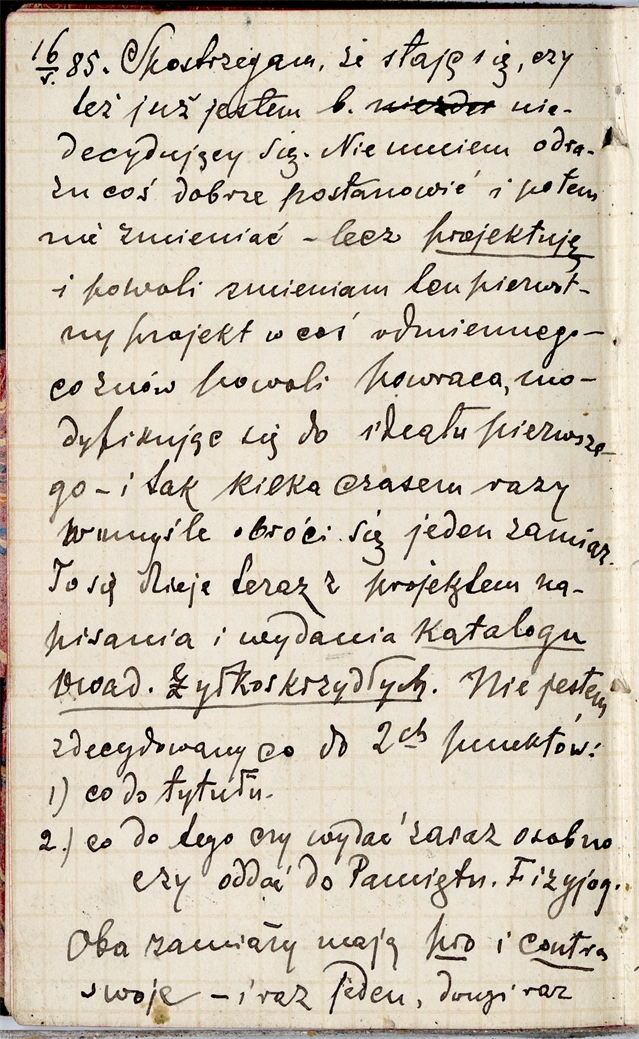 16/V. 85. Spostrzegam, że staję się, czy
też już jestem b. niezdec nie-
decydujący się. Nie umiem odra-
zu coś dobrze postanowić i potem
nie zmieniać – lecz projektuję
i powoli zmieniam ten pierwot-
ny projekt w coś odmiennego –
co znów powoli powraca, mo-
dyfikując się do ideału pierwsze-
go – i tak kilka czasem razy
w umyśle obróci się jeden zamiar.
To się dzieje teraz z projektem na-
pisania i wydania Katalogu
Owad. Żyłkoskrzydłych. Nie jestem
zdecydowany co do 2ch punktów:
1) co do tytułu.
2.) co do tego czy wydać zaraz osobno
czy oddać do Pamiętn. Fizyjog.
Oba zamiary mają pro i contra
swoje – i raz jeden, drugi raz